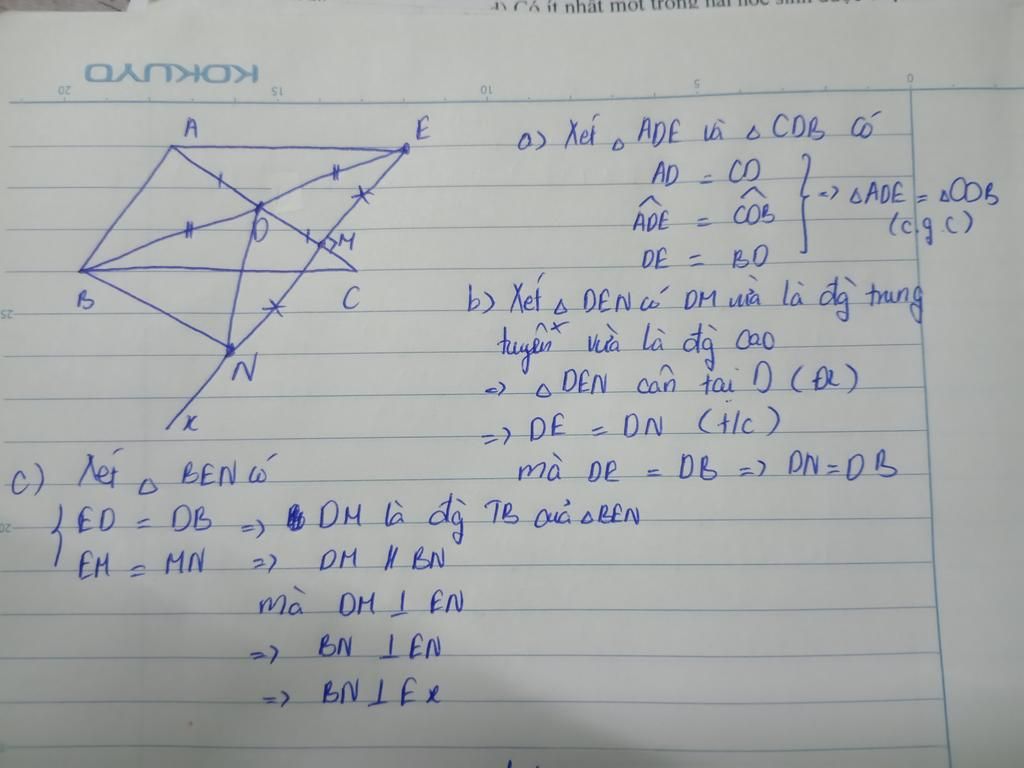 d) Có ít nhất một trong hai học sinh được
KOKUYO
20 15 10 5 0
A E
D M
B C
N
x
25
20
a) Xét △ ADE và △ CDB có
AD = CD
ADE = CDB
DE = BD
=> △ADE = △CDB
(c.g.c)
b) Xét △ DEN có DM vừa là đg trung
tuyến vừa là đg cao
=> △ DEN cân tại D (Đl)
=> DE = DN (t/c)
mà DE = DB => DN = DB
c) Xét △ BEN có
ED = DB => DM là đg TB của △BEN
EM = MN => DM // BN
mà DM ⊥ EN
=> BN ⊥ EN
=> BN ⊥ Ex